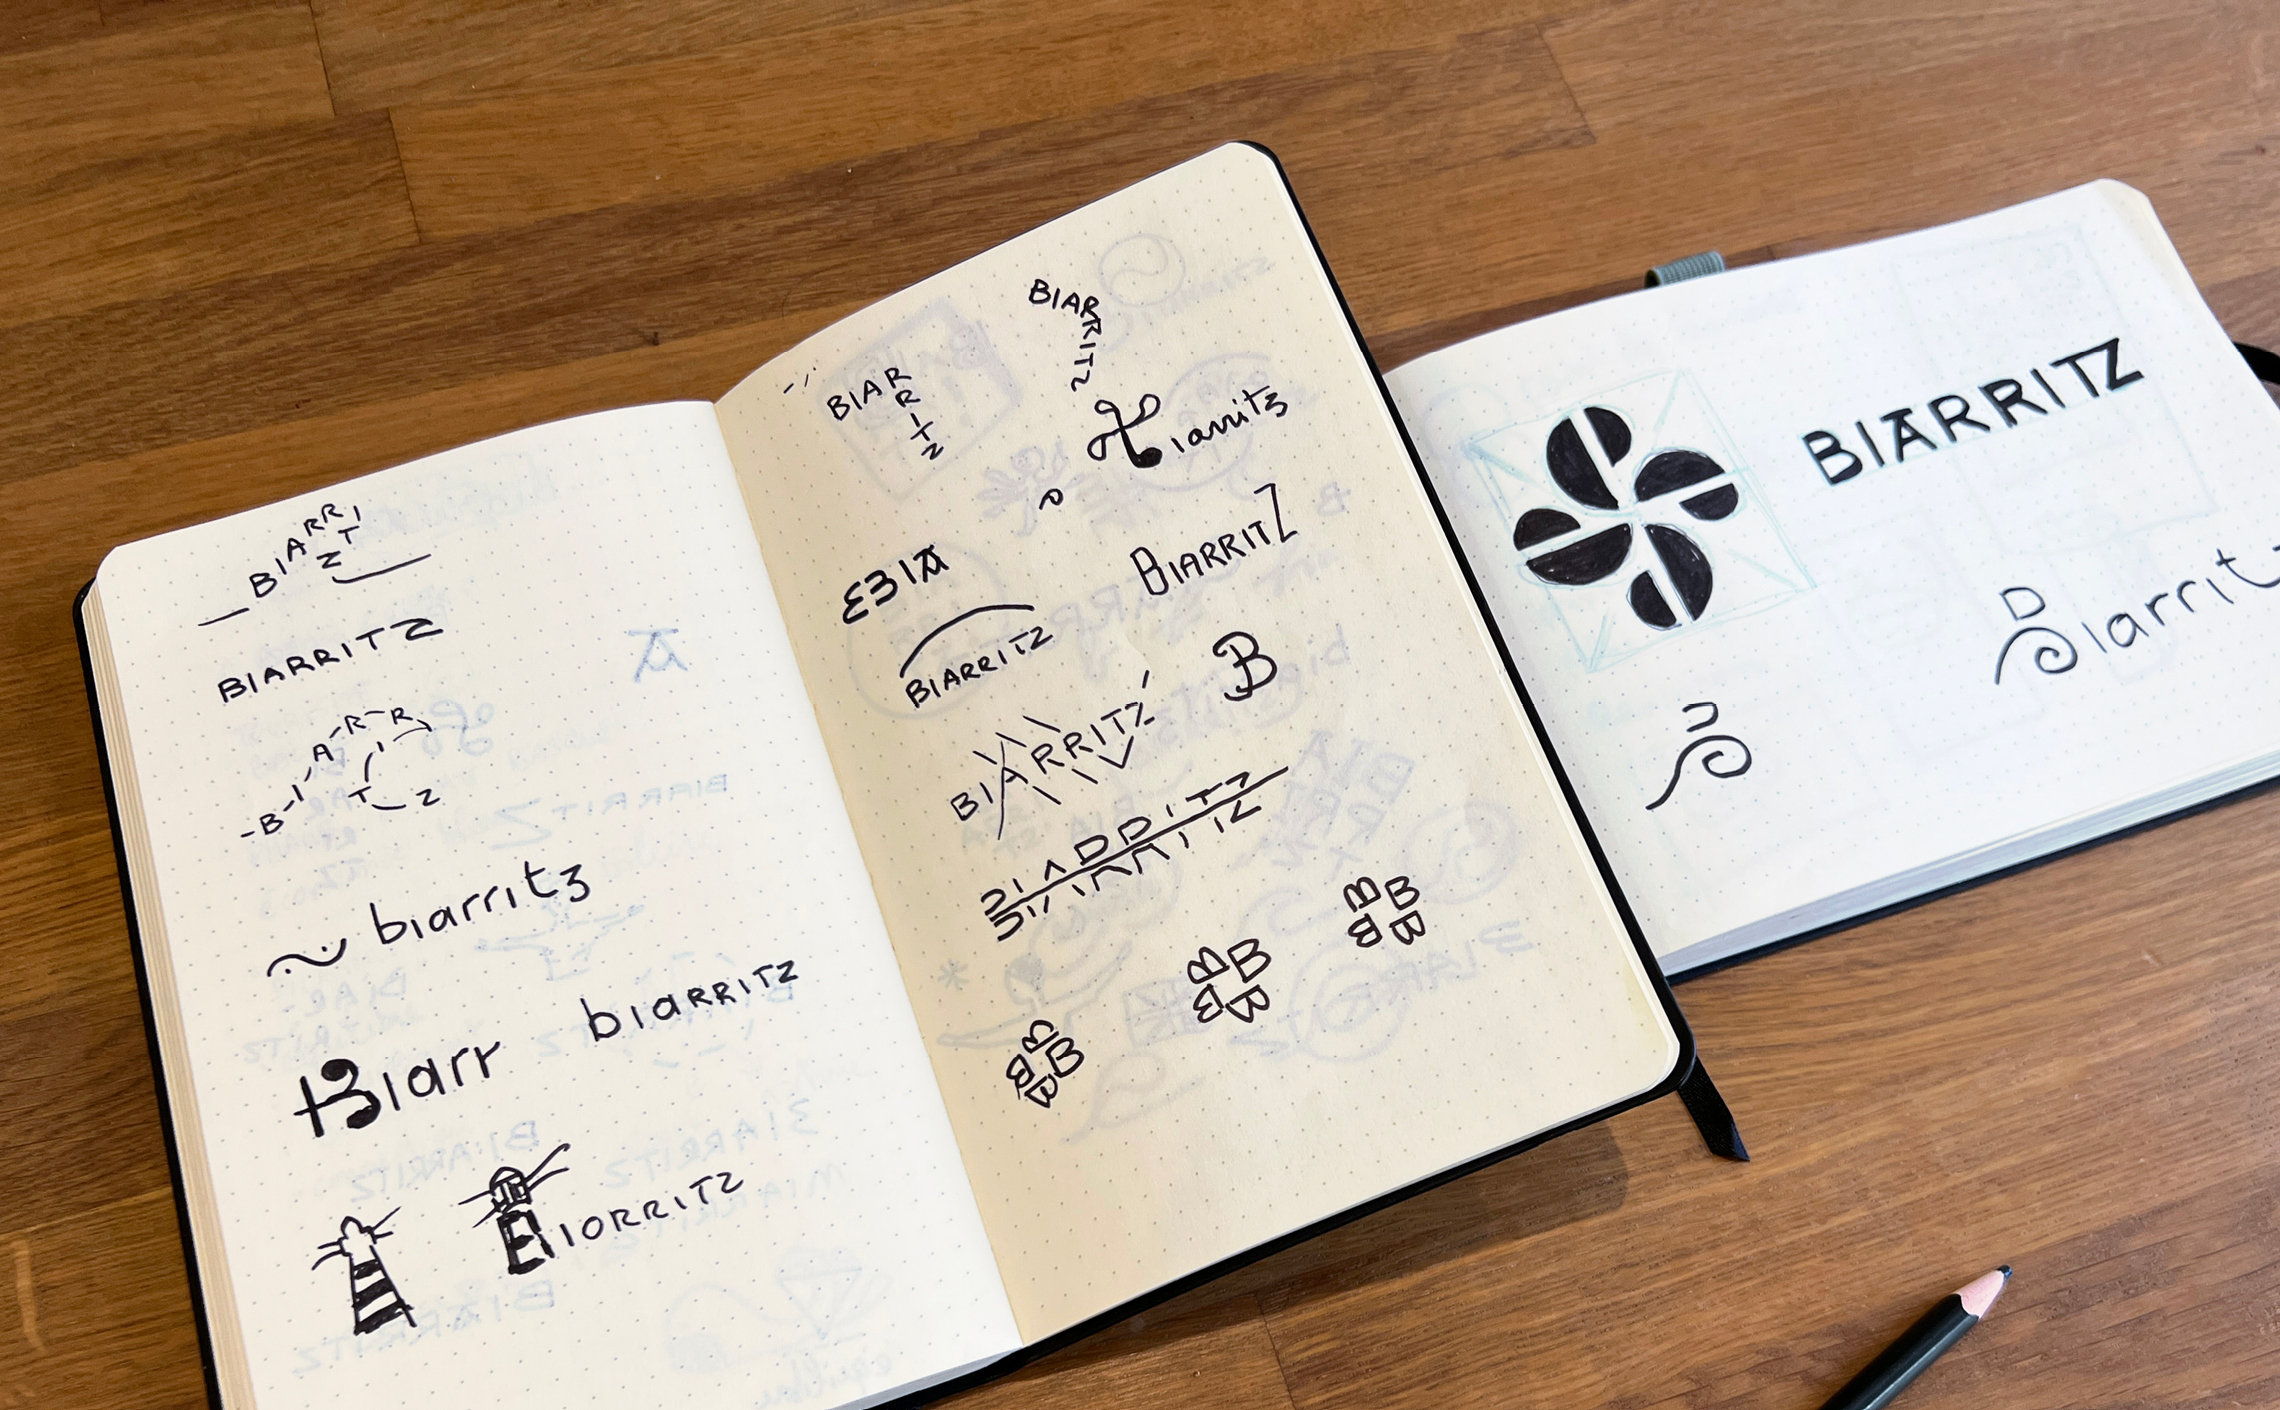 BIARRITZ
BIARRITZ
BIARRITZ
biarritz
biarritz
Biarr
BIORRITZ
BIARRITZ
BIARRITZ
Biarritz
BIA
BIARRITZ
BIARRITZ
B
BIARRITZ
BIARRITZ
B B B B
B B B B
B B B B
BIARRITZ
Biarrit